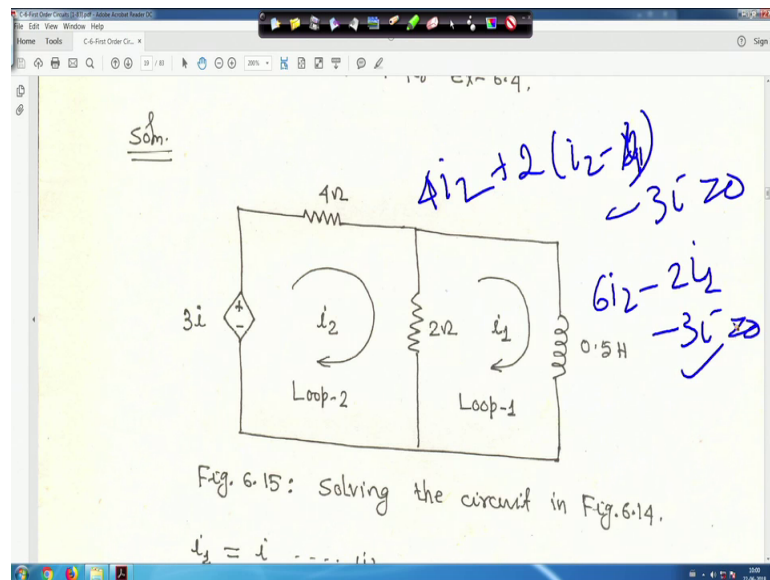 C-6-First Order Circuits (1-83).pdf - Adobe Acrobat Reader DC
File Edit View Window Help
Home Tools C-6-First Order Cir... × Sign
19 / 83 200%
Ex- 6.4.
Soln.
4i2 + 2(i2 - i1)
- 3i = 0
4Ω
6i2 - 2i1
- 3i = 0
3i + - i2 2Ω i1 0.5H
Loop-2 Loop-1
Fig. 6.15: Solving the circuit in Fig.6.14.
i1 = i
10:00